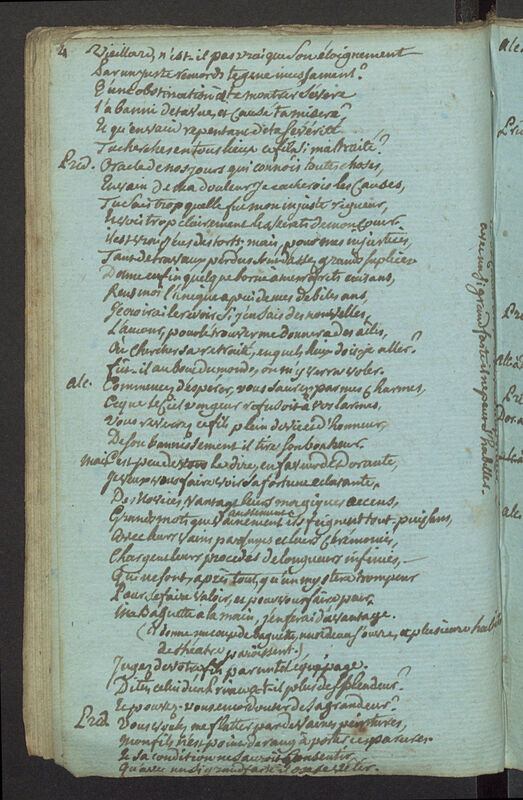 4
Vieillard, n'est-il pas vrai que son éloignement
Par un juste remords te gêne incessament?
Qu'une obstination à te montrer sévère
L'a banni de ta vue, et cause ta misère?
Qu'en vain au repentir de ta sévérité
Tu cherches en tous lieux ce fils si maltraité?
Prid. Oracle de nos jours qui connois toutes choses,
En vain de ma douleur je cacherois les causes,
Tu sais trop quelle fut mon injuste rigueur,
Et vois trop clairement les secrets de mon coeur.
il est vrai, j'eus des torts; mais, pour mes injustices,
Tant de travaux perdus sont d'assez grands supplices
Donne enfin quelque borne à mes regrets cuisans,
Rens moi l'unique appui de mes débiles ans,
Je croirai le revoir si j'en sais des nouvelles,
L'amour, pour le trouver me donnera des ailes,
Où cherche sa retraite, en quels lieux dois-je aller?
Fût-il au bout du monde, on m'y verra voler.
alc. Commencez d'espérer, vous saurez par mes charmes,
Ce que le Ciel vengeur refusoit à vos larmes,
Vous reverrez ce fils plein de vie et d'honneur,
De son bannissement il tire son bonheur.
Mais c'est peu de vous le dire, en faveur de Dorante,
Je veux vous faire voir sa fortune éclatante,
Des Novices, vantant leurs magiques accens,
Grands mots que vainement ils feignent tout-puissans,
Avec leurs vains parfums et leurs Cérémonies,
Chargent leurs procédés de longueurs infinies,
Qui ne sont, après tout, qu'un mystère trompeur
Pour se faire valoir, et pour vous faire peur.
Ma Baguette à la main, j'en ferai davantage.
(il donne un coup de baguette, un rideau s'ouvre, et plusieurs habits
de théatre paroissent.)
Jugez de votre fils par un tel équipage.
Dites, celui d'un Prince a-t-il plus de splendeur?
Et pouvez-vous encor douter de sa grandeur?
Prid. Vous voulez me flatter par de vaines peintures,
Mon fils n'est point de rang à porter ces parures.
Et sa condition ne sauroit consentir
Qu'avec
avec un si grand faste il ose s'habiller.